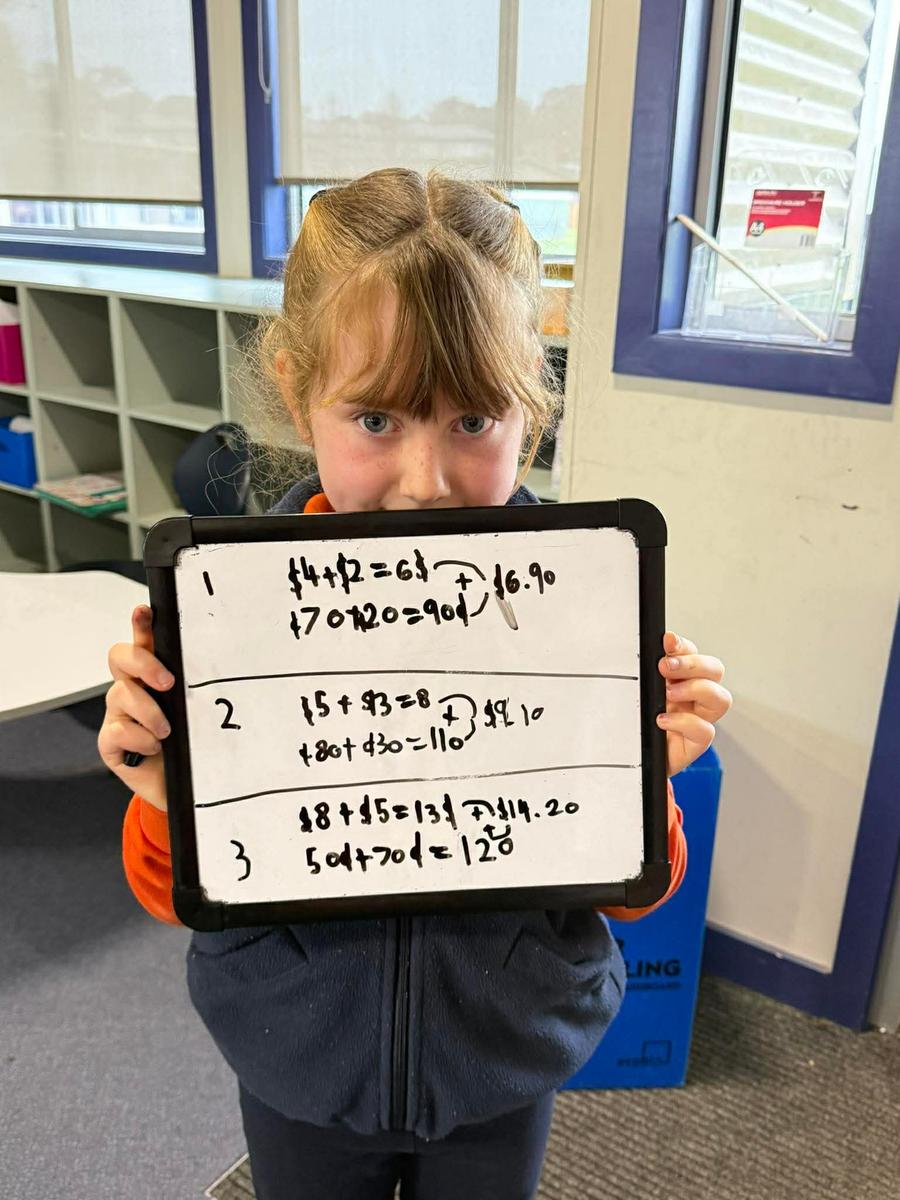 1 $4+$2=6$ + $6.90
¢70+¢20=90¢
2 $5+$3=8 + $9.10
¢80+¢30=110
$8+$5=13$ + $14.20
3 50¢+70¢=120
A4
LING